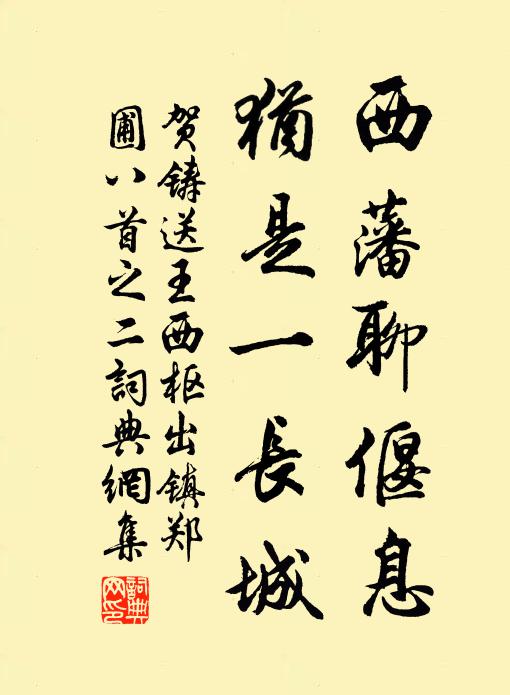 西藩聊偃息
猶是一長城
贺鑄送王西枢出镇郑
圃八首之二詞典網集
詞典网印